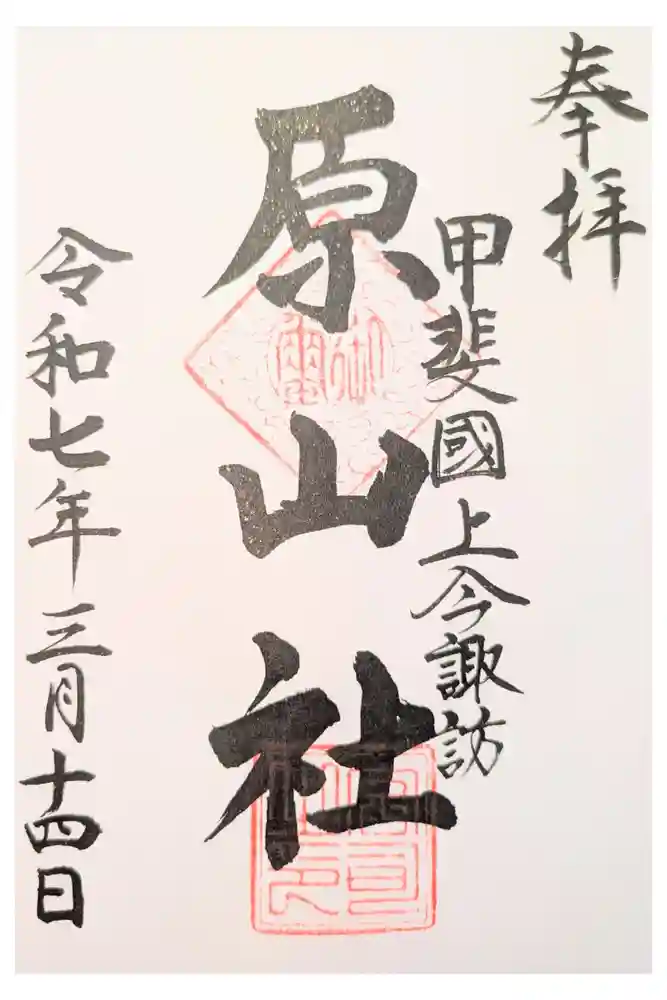 奉拝
甲斐國上今諏訪
原山社
令和七年三月十四日